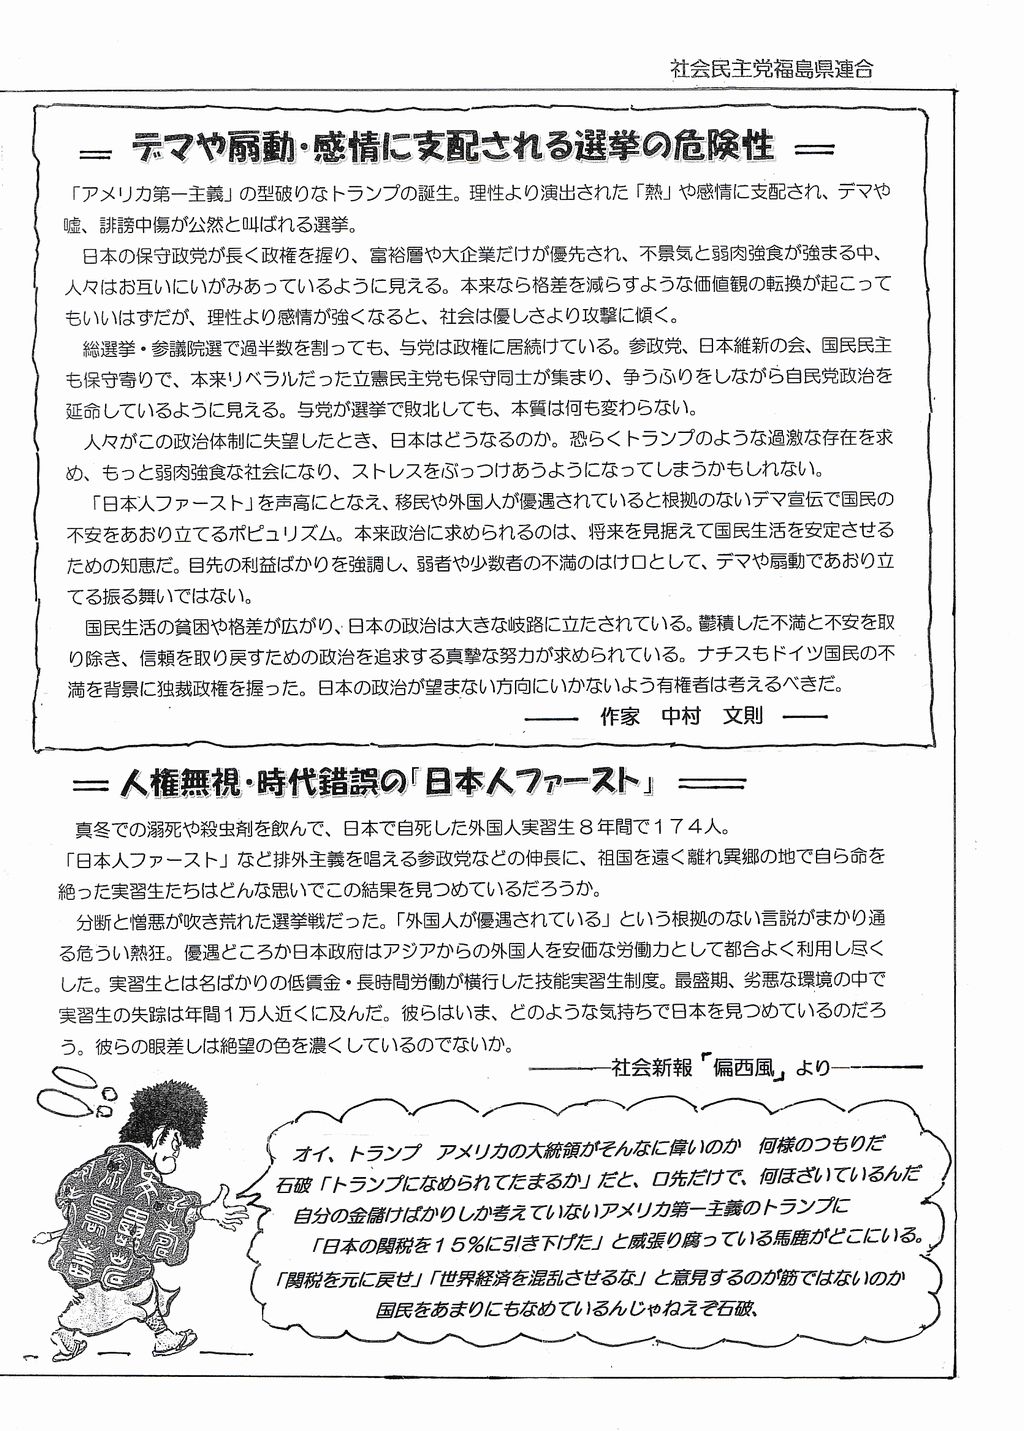 社会民主党福島県連合
デマや扇動・感情に支配される選挙の危険性
「アメリカ第一主義」の型破りなトランプの誕生。理性より演出された「熱」や感情に支配され、デマや
嘘、誹謗中傷が公然と叫ばれる選挙。
日本の保守政党が長く政権を握り、富裕層や大企業だけが優先され、不景気と弱肉強食が強まる中、
人々はお互いにいがみあっているように見える。本来なら格差を減らすような価値観の転換が起こって
もいいはずだが、理性より感情が強くなると、社会は優しさより攻撃に傾く。
総選挙・参議院選で過半数を割っても、与党は政権に居続けている。参政党、日本維新の会、国民民主
も保守寄りで、本来リベラルだった立憲民主党も保守同士が集まり、争うふりをしながら自民党政治を
延命しているように見える。与党が選挙で敗北しても、本質は何も変わらない。
人々がこの政治体制に失望したとき、日本はどうなるのか。恐らくトランプのような過激な存在を求
め、もっと弱肉強食な社会になり、ストレスをぶっつけあうようになってしまうかもしれない。
「日本人ファースト」を声高にとなえ、移民や外国人が優遇されていると根拠のないデマ宣伝で国民の
不安をあおり立てるポピュリズム。本来政治に求められるのは、将来を見据えて国民生活を安定させる
ための知恵だ。目先の利益ばかりを強調し、弱者や少数者の不満のはけ口として、デマや扇動であおり立
てる振る舞いではない。
国民生活の貧困や格差が広がり、日本の政治は大きな岐路に立たされている。鬱積した不満と不安を取
り除き、信頼を取り戻すための政治を追求する真摯な努力が求められている。ナチスもドイツ国民の不
満を背景に独裁政権を握った。日本の政治が望まない方向にいかないよう有権者は考えるべきだ。
作家 中村 文則
人権無視・時代錯誤の「日本人ファースト」
真冬での溺死や殺虫剤を飲んで、日本で自死した外国人実習生８年間で１７４人。
「日本人ファースト」など排外主義を唱える参政党などの伸長に、祖国を遠く離れ異郷の地で自ら命を
絶った実習生たちはどんな思いでこの結果を見つめているだろうか。
分断と憎悪が吹き荒れた選挙戦だった。「外国人が優遇されている」という根拠のない言説がまかり通
る危うい熱狂。優遇どころか日本政府はアジアからの外国人を安価な労働力として都合よく利用し尽く
した。実習生とは名ばかりの低賃金・長時間労働が横行した技能実習生制度。最盛期、劣悪な環境の中で
実習生の失踪は年間１万人近くに及んだ。彼らはいま、どのような気持ちで日本を見つめているのだろ
う。彼らの眼差しは絶望の色を濃くしているのでないか。
社会新報「偏西風」より
オイ、トランプ アメリカの大統領がそんなに偉いのか 何様のつもりだ
石破「トランプになめられてたまるか」だと、口先だけで、何ほざいているんだ
自分の金儲けばかりしか考えていないアメリカ第一主義のトランプに
「日本の関税を１５％に引き下げた」と威張り腐っている馬鹿がどこにいる。
「関税を元に戻せ」「世界経済を混乱させるな」と意見するのが筋ではないのか
国民をあまりにもなめているんじゃねえぞ石破、